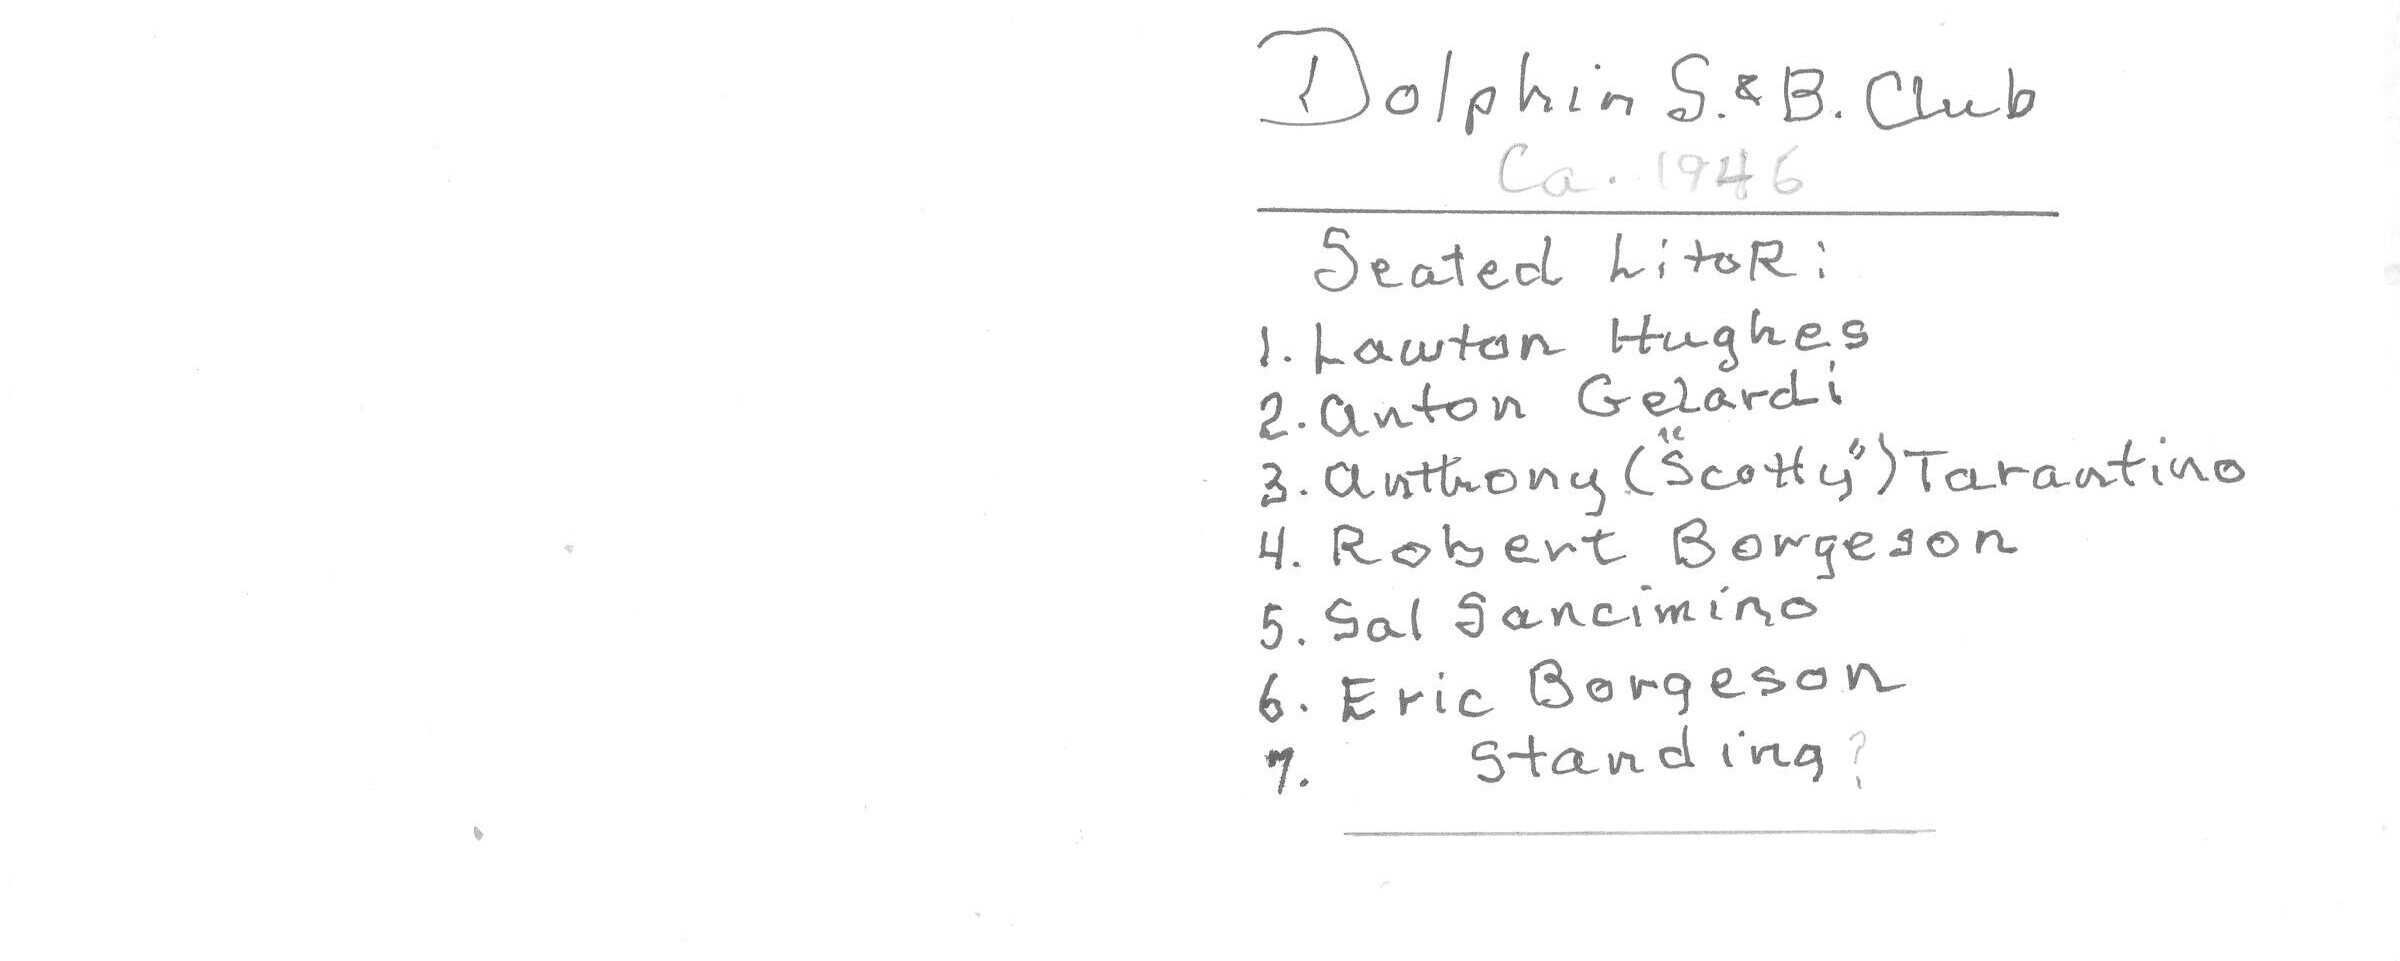 Dolphin S. & B. Club
Ca. 1946
Seated L to R:
1. Lawton Hughes
2. Anton Gelardi
3. Anthony ("Scotty") Tarantino
4. Robert Borgeson
5. Sal Sancimino
6. Eric Borgeson
7. Standing?